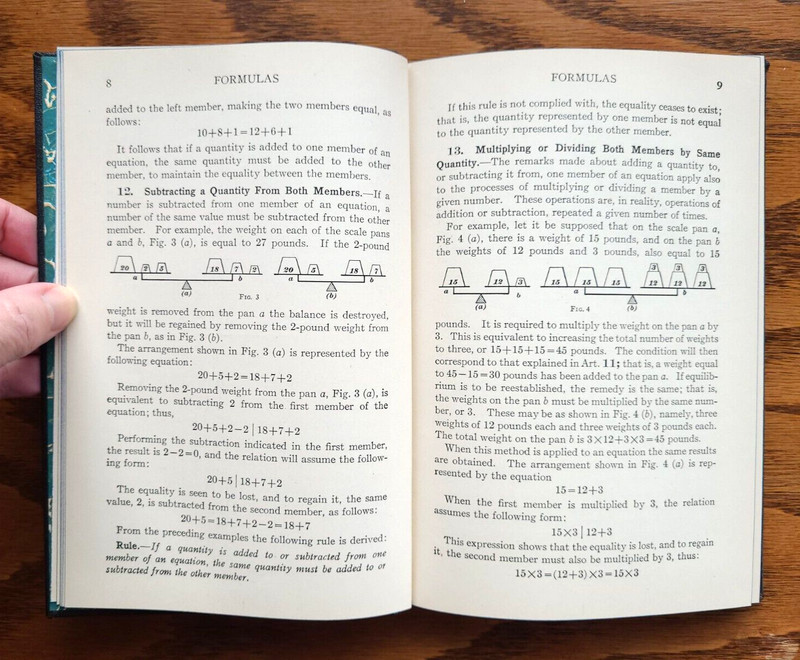 8 FORMULAS
added to the left member, making the two members equal, as
follows:
10+8+1=12+6+1
It follows that if a quantity is added to one member of an
equation, the same quantity must be added to the other
member, to maintain the equality between the members.
12. Subtracting a Quantity From Both Members.—If a
number is subtracted from one member of an equation, a
number of the same value must be subtracted from the other
member. For example, the weight on each of the scale pans
a and b, Fig. 3 (a), is equal to 27 pounds. If the 2-pound
20 2 5 18 7 2 20 5 18 7
a b a b
(a) FIG. 3 (b)
weight is removed from the pan a the balance is destroyed,
but it will be regained by removing the 2-pound weight from
the pan b, as in Fig. 3 (b).
The arrangement shown in Fig. 3 (a) is represented by the
following equation:
20+5+2=18+7+2
Removing the 2-pound weight from the pan a, Fig. 3 (a), is
equivalent to subtracting 2 from the first member of the
equation; thus,
20+5+2−2 | 18+7+2
Performing the subtraction indicated in the first member,
the result is 2−2=0, and the relation will assume the follow-
ing form:
20+5 | 18+7+2
The equality is seen to be lost, and to regain it, the same
value, 2, is subtracted from the second member, as follows:
20+5=18+7+2−2=18+7
From the preceding examples the following rule is derived:
Rule.—If a quantity is added to or subtracted from one
member of an equation, the same quantity must be added to or
subtracted from the other member.
FORMULAS 9
If this rule is not complied with, the equality ceases to exist;
that is, the quantity represented by one member is not equal
to the quantity represented by the other member.
13. Multiplying or Dividing Both Members by Same
Quantity.—The remarks made about adding a quantity to,
or subtracting it from, one member of an equation apply also
to the processes of multiplying or dividing a member by a
given number. These operations are, in reality, operations of
addition or subtraction, repeated a given number of times.
For example, let it be supposed that on the scale pan a,
Fig. 4 (a), there is a weight of 15 pounds, and on the pan b
the weights of 12 pounds and 3 pounds, also equal to 15
3 3 3
15 12 3 15 15 15 12 12 12
a b a b
(a) FIG. 4 (b)
pounds. It is required to multiply the weight on the pan a by
3. This is equivalent to increasing the total number of weights
to three, or 15+15+15=45 pounds. The condition will then
correspond to that explained in Art. 11; that is, a weight equal
to 45−15=30 pounds has been added to the pan a. If equilib-
rium is to be reestablished, the remedy is the same; that is,
the weights on the pan b must be multiplied by the same num-
ber, or 3. These may be as shown in Fig. 4 (b), namely, three
weights of 12 pounds each and three weights of 3 pounds each.
The total weight on the pan b is 3×12+3×3=45 pounds.
When this method is applied to an equation the same results
are obtained. The arrangement shown in Fig. 4 (a) is rep-
resented by the equation
15=12+3
When the first member is multiplied by 3, the relation
assumes the following form:
15×3 | 12+3
This expression shows that the equality is lost, and to regain
it, the second member must also be multiplied by 3, thus:
15×3=(12+3)×3=15×3